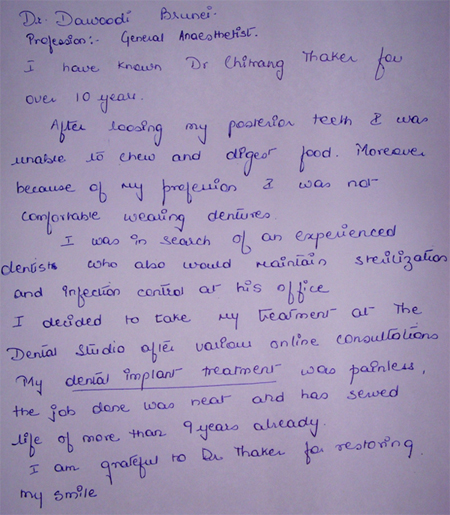 Dr. Dawoodi Brunei.
Profession:- General Anaesthetist.
I have known Dr Chirang Thaker for
over 10 years.
After loosing my posterior teeth I was
unable to chew and digest food. Moreover
because of my profession I was not
comfortable wearing dentures.
I was in search of an experienced
dentists who also would maintain sterilization
and infection control at his office
I decided to take my treatment at The
Dental Studio after various online consultations
My dental implant treatment was painless,
the job done was neat and has served
life of more than 9 years already.
I am grateful to Dr Thaker for restoring
my smile